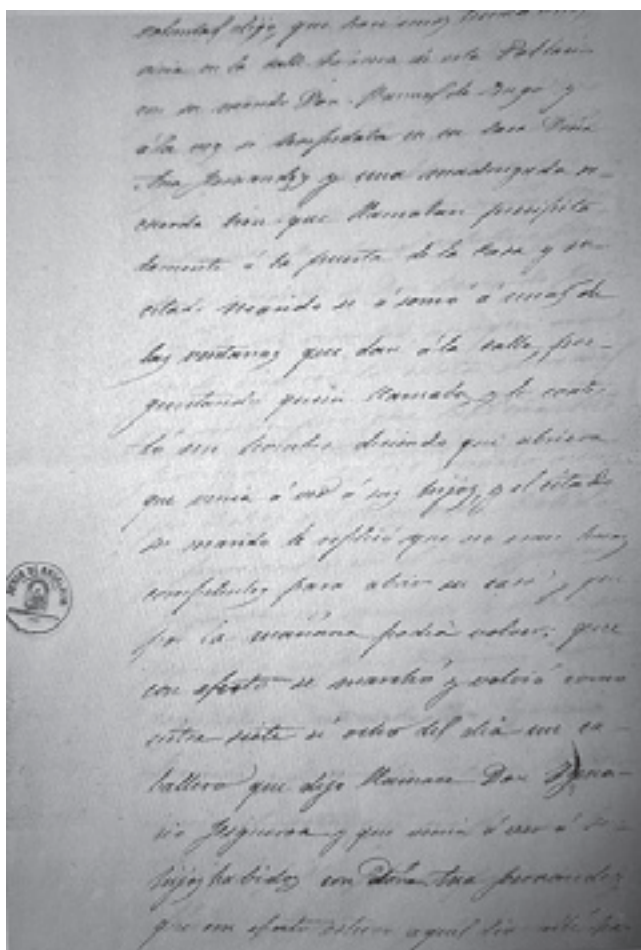 voluntad dijo, que hace unos
vivia en la calle de esta Poblacion
con su marido Don Manuel de Lugo y
á la vez se hospedaba en su casa Doña
Ana Fernandez y una madrugada re-
cuerda bien que llamaban precipita-
damente á la puerta de la casa y su
citado marido se asomó á una de
las ventanas que dan á la calle, pre-
guntando quien llamaba, y le contes-
tó un hombre diciendo que abriera
que venia á ver á sus hijos, y el citado
su marido le replicó que no eran horas
competentes para abrir su casa, que
por la mañana podia volver; que
con efecto se marchó y volvió como
entre siete u ocho del dia un ca-
ballero que dijo llamarse Don Ygna-
cio y que venia á ver á sus
hijos habidos con Doña Ana Fernandez
que con efecto estuvo aquel dia